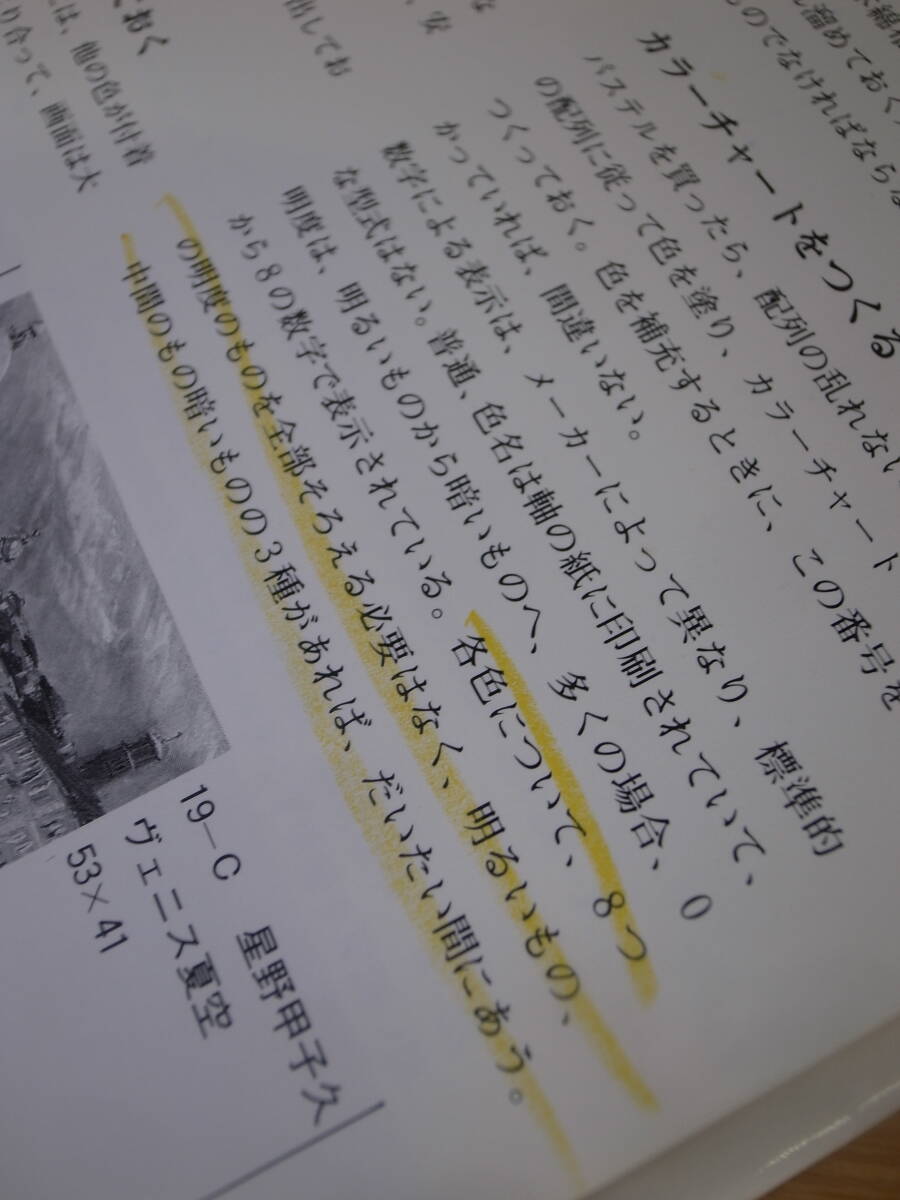 溜めておく
ものでなければならな
カラーチャートをつくる
パステルを買ったら、配列の乱れない
の配列に従って色を塗り、カラーチャート
つくっておく。色を補充するときに、この番号を
かっていれば、間違いない。
数字による表示は、メーカーによって異なり、標準的
な型式はない。普通、色名は軸の紙に印刷されていて、
明度は、明るいものから暗いものへ、多くの場合、0
から8の数字で表示されている。各色について、8つ
の明度のものを全部そろえる必要はなく、明るいもの、
中間のもの暗いものの3種があれば、だいたい間にあう。
な
、安
出してお
ておく
は、他の色が付着
り合って、画面は大
19―C 星野甲子久
ヴェニス夏空
53×41